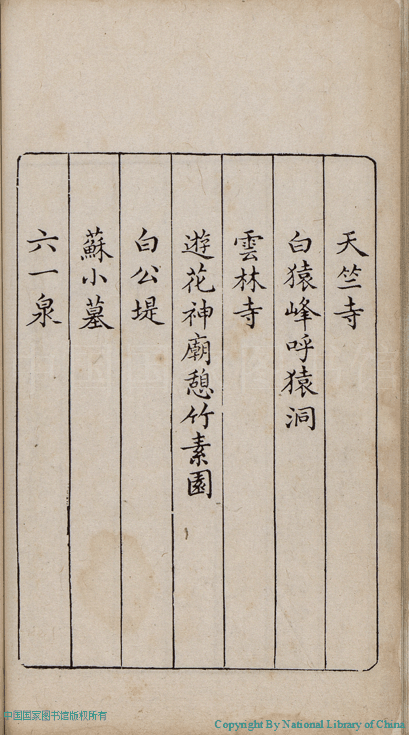 天竺寺
白猿峰呼猿洞
雲林寺
遊花神廟憩竹素園
白公堤
蘇小墓
六一泉
中国国家图书馆版权所有
Copyright By National Library of China